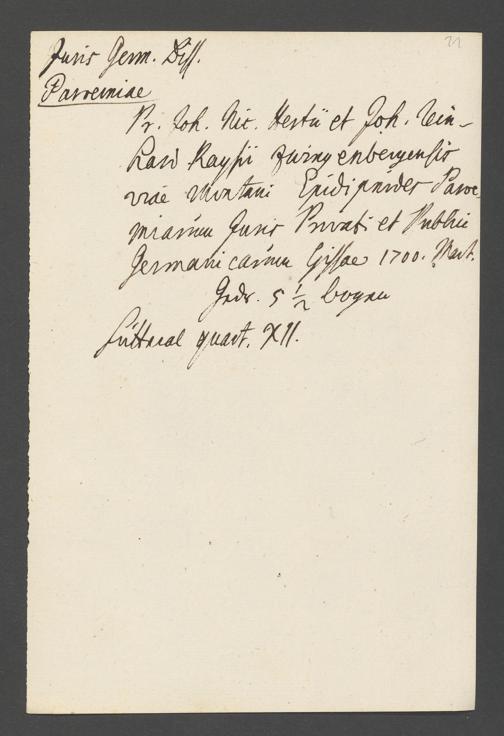 21
Juris Germ. Diss.
Paroemiae
Pr. Joh. Nic. Hertii et Joh. Rein-
hard Raysii Zwingenbergensis
viae Montani Epidipnides Paroe-
miarum Juris Privati et Publici
Germanicarum Gissae 1700. Mart.
Gedr. 5 1/2 bogen
quart. XII.